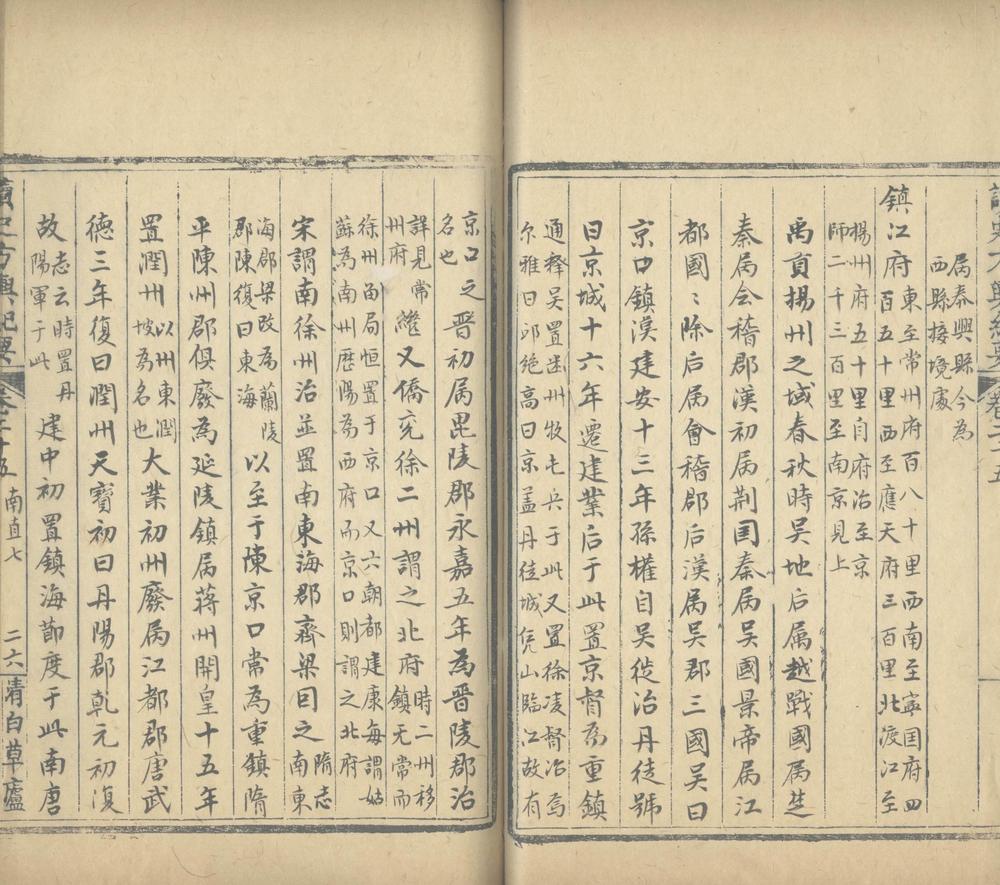 讀史方輿紀要 卷二十五
属泰興縣今為
西縣接境處
鎮江府
東至常州府百八十里西南至寧囯府四
百五十里西至應天府三百里北渡江至
楊州府五十里自府治至京
師二千三百里至南京見上
禹貢揚州之域春秋時吴地后属越戰國属楚
秦屬会稽郡漢初屬荆囯秦屬吴國景帝屬江
都國〻除后屬會稽郡后漢屬吴郡三國吴曰
京口鎮漢建安十三年孫權自吴徙治丹徒號
曰京城十六年遷建業后于此置京督為重鎮
通釋吴置迷州牧屯兵于此又置徐凌督治焉
尔雅曰邱絶高曰京盖丹徒城凭山臨江故有
京口之
名也
晋初屬毘陵郡永嘉五年為晋陵郡治
詳見常
州府
繼又僑兗徐二州謂之北府
時二州移
鎮无常而
徐州畱局恒置于京口又六朝都建康每謂姑
蘇為南州歷陽為西府而京口則謂之北府
宋謂南徐州治並置南東海郡齊梁囙之
隋志
南東
海郡梁改為蘭陵
郡陳復曰東海
以至于陳京口常為重鎮隋
平陳州郡俱廢為延陵鎮屬蒋州開皇十五年
置潤州
以州東潤
坡為名也
大業初州廢屬江都郡唐武
德三年復曰潤州天寶初曰丹陽郡乹元初復
故
志云時置丹
陽軍于此
建中初置鎮海節度于此南唐
讀史方輿紀要 卷二十五 南直七 二六 清白草廬